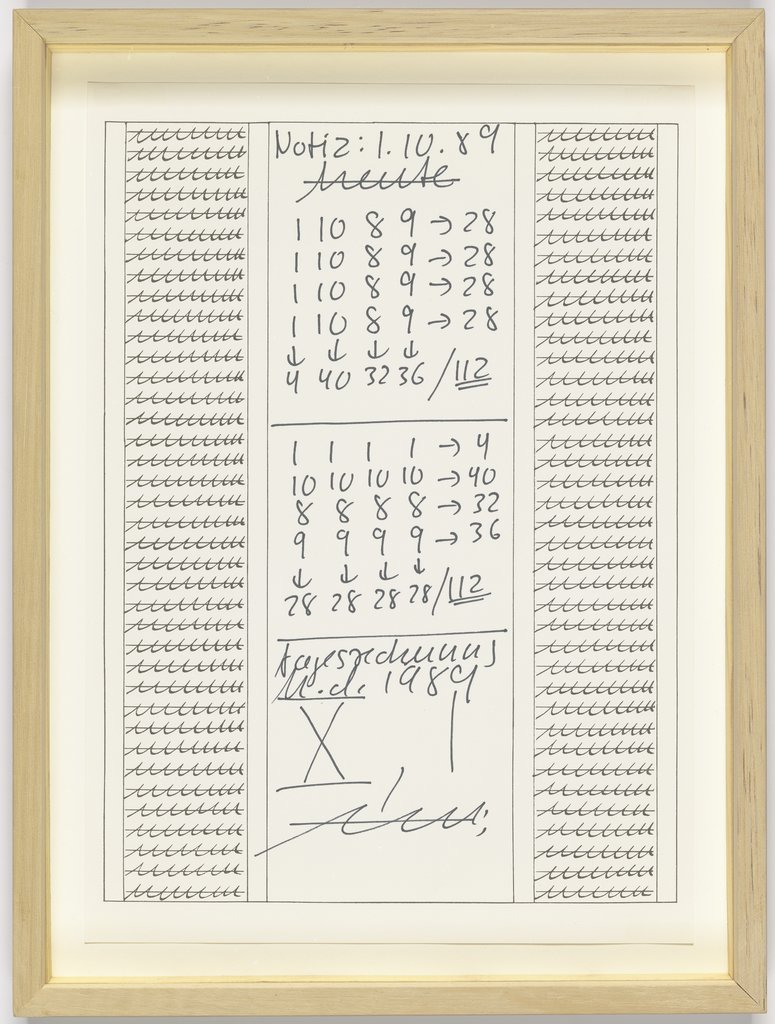 Notiz: 1.10.89
heute
1 10 8 9 → 28
1 10 8 9 → 28
1 10 8 9 → 28
1 10 8 9 → 28
↓ ↓ ↓ ↓
4 40 32 36 / 112
1 1 1 1 → 4
10 10 10 10 → 40
8 8 8 8 → 32
9 9 9 9 → 36
↓ ↓ ↓ ↓
28 28 28 28 / 112
tagesrechnung
1989
X 1